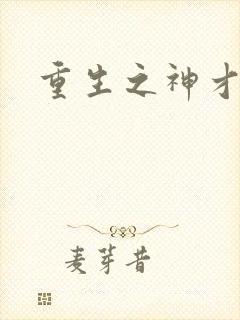 重生之神才
麦芽昔